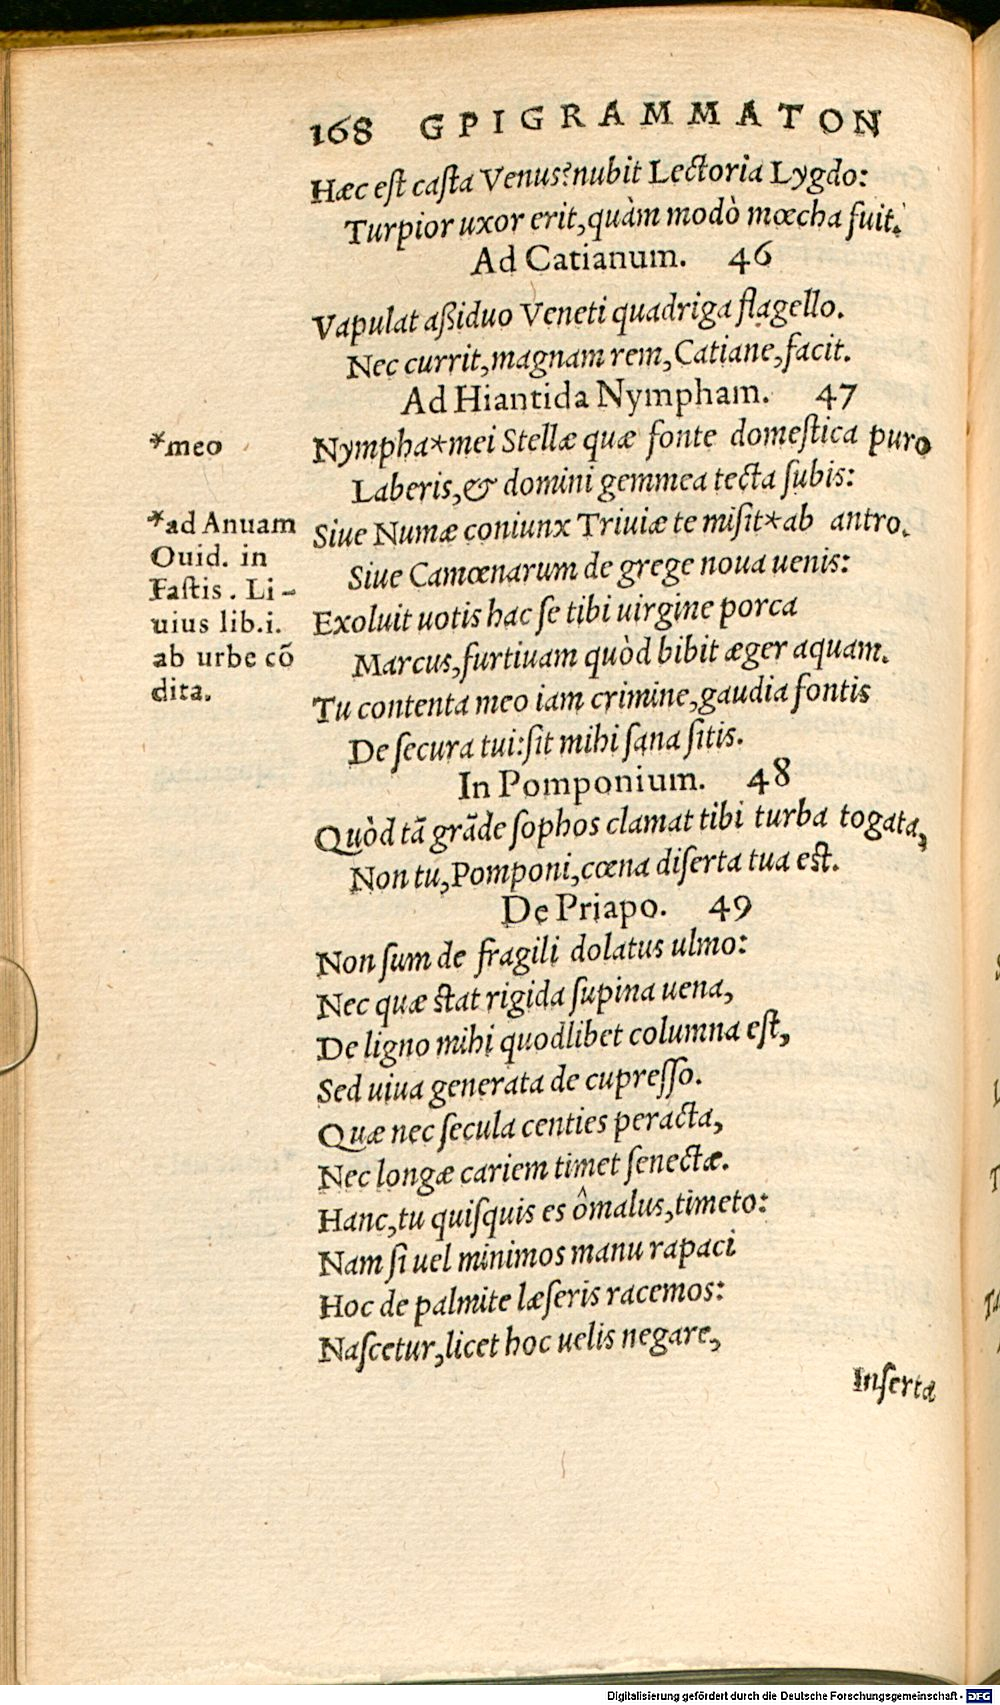 168 GPIGRAMMATON
Hæc eſt caſta Venus? nubit Lectoria Lygdo:
Turpior uxor erit, quàm modò mœcha fuit.
Ad Catianum. 46
Vapulat aßiduo Veneti quadriga flagello.
Nec currit, magnam rem, Catiane, facit.
Ad Hiantida Nympham. 47
*meo
Nympha*mei Stellæ quæ fonte domeſtica puro
Laberis, & domini gemmea tecta ſubis:
*ad Anuam
Siue Numæ coniunx Triuiæ te miſit*ab antro.
Ouid. in
Siue Camœnarum de grege noua uenis:
Faſtis. Li-
uius lib.i.
Exoluit uotis hac ſe tibi uirgine porca
ab urbe cõ
Marcus, furtiuam quòd bibit æger aquam.
dita.
Tu contenta meo iam crimine, gaudia fontis
De ſecura tui: ſit mihi ſana ſitis.
In Pomponium. 48
Quòd tã grãde ſophos clamat tibi turba togata,
Non tu, Pomponi, cœna diſerta tua eſt.
De Priapo. 49
Non ſum de fragili dolatus ulmo:
Nec quæ ſtat rigida ſupina uena,
De ligno mihi quodlibet columna eſt,
Sed uiua generata de cupreſſo.
Quæ nec ſecula centies peracta,
Nec longæ cariem timet ſenectæ.
Hanc, tu quiſquis es ô malus, timeto:
Nam ſi uel minimos manu rapaci
Hoc de palmite læſeris racemos:
Naſcetur, licet hoc uelis negare,
Inſerta
Digitalisierung gefördert durch die Deutsche Forschungsgemeinschaft - DFG